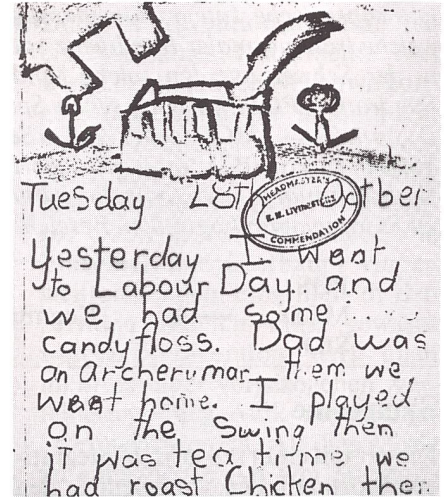 Tuesday 28th October
HEADMASTER'S
COMMENDATION
Yesterday I went
to Labour Day and
we had some
candyfloss. Dad was
an Archery man them we
went home. I played
on the Swing then
it was tea time we
had roast Chicken then